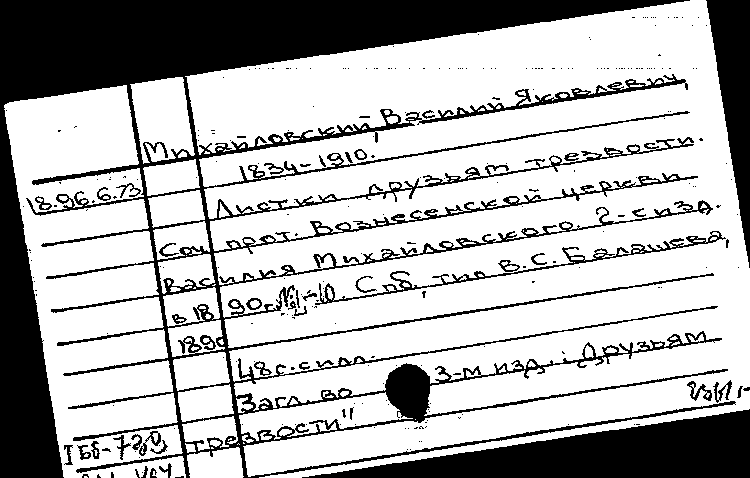 Михайловский, Василий Яковлевич,
1834-1910.
18.96.6.73
Листки друзьям трезвости.
Соч. прот. Вознесенской церкви
Василия Михайловского. 2-е изд.
в 1890г. №1-10. Спб, тип В.С. Балашева,
1890
48с. с илл.
Загл. во 3-м изд.: „Друзьям
трезвости"